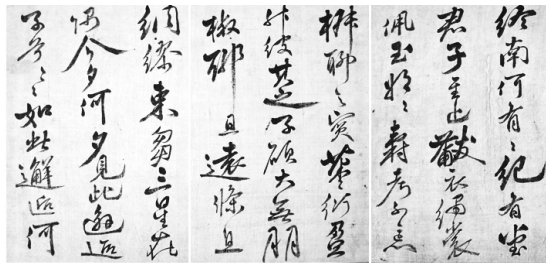 終南何有〻紀有堂
君子至止黻衣繡裳
佩玉將〻壽考不忘
椒聊之實蕃衍盈
升彼其之子碩大無朋
椒聊且遠條且
綢繆束芻三星在
隅今夕何夕見此邂逅
子兮〻〻如此邂逅何